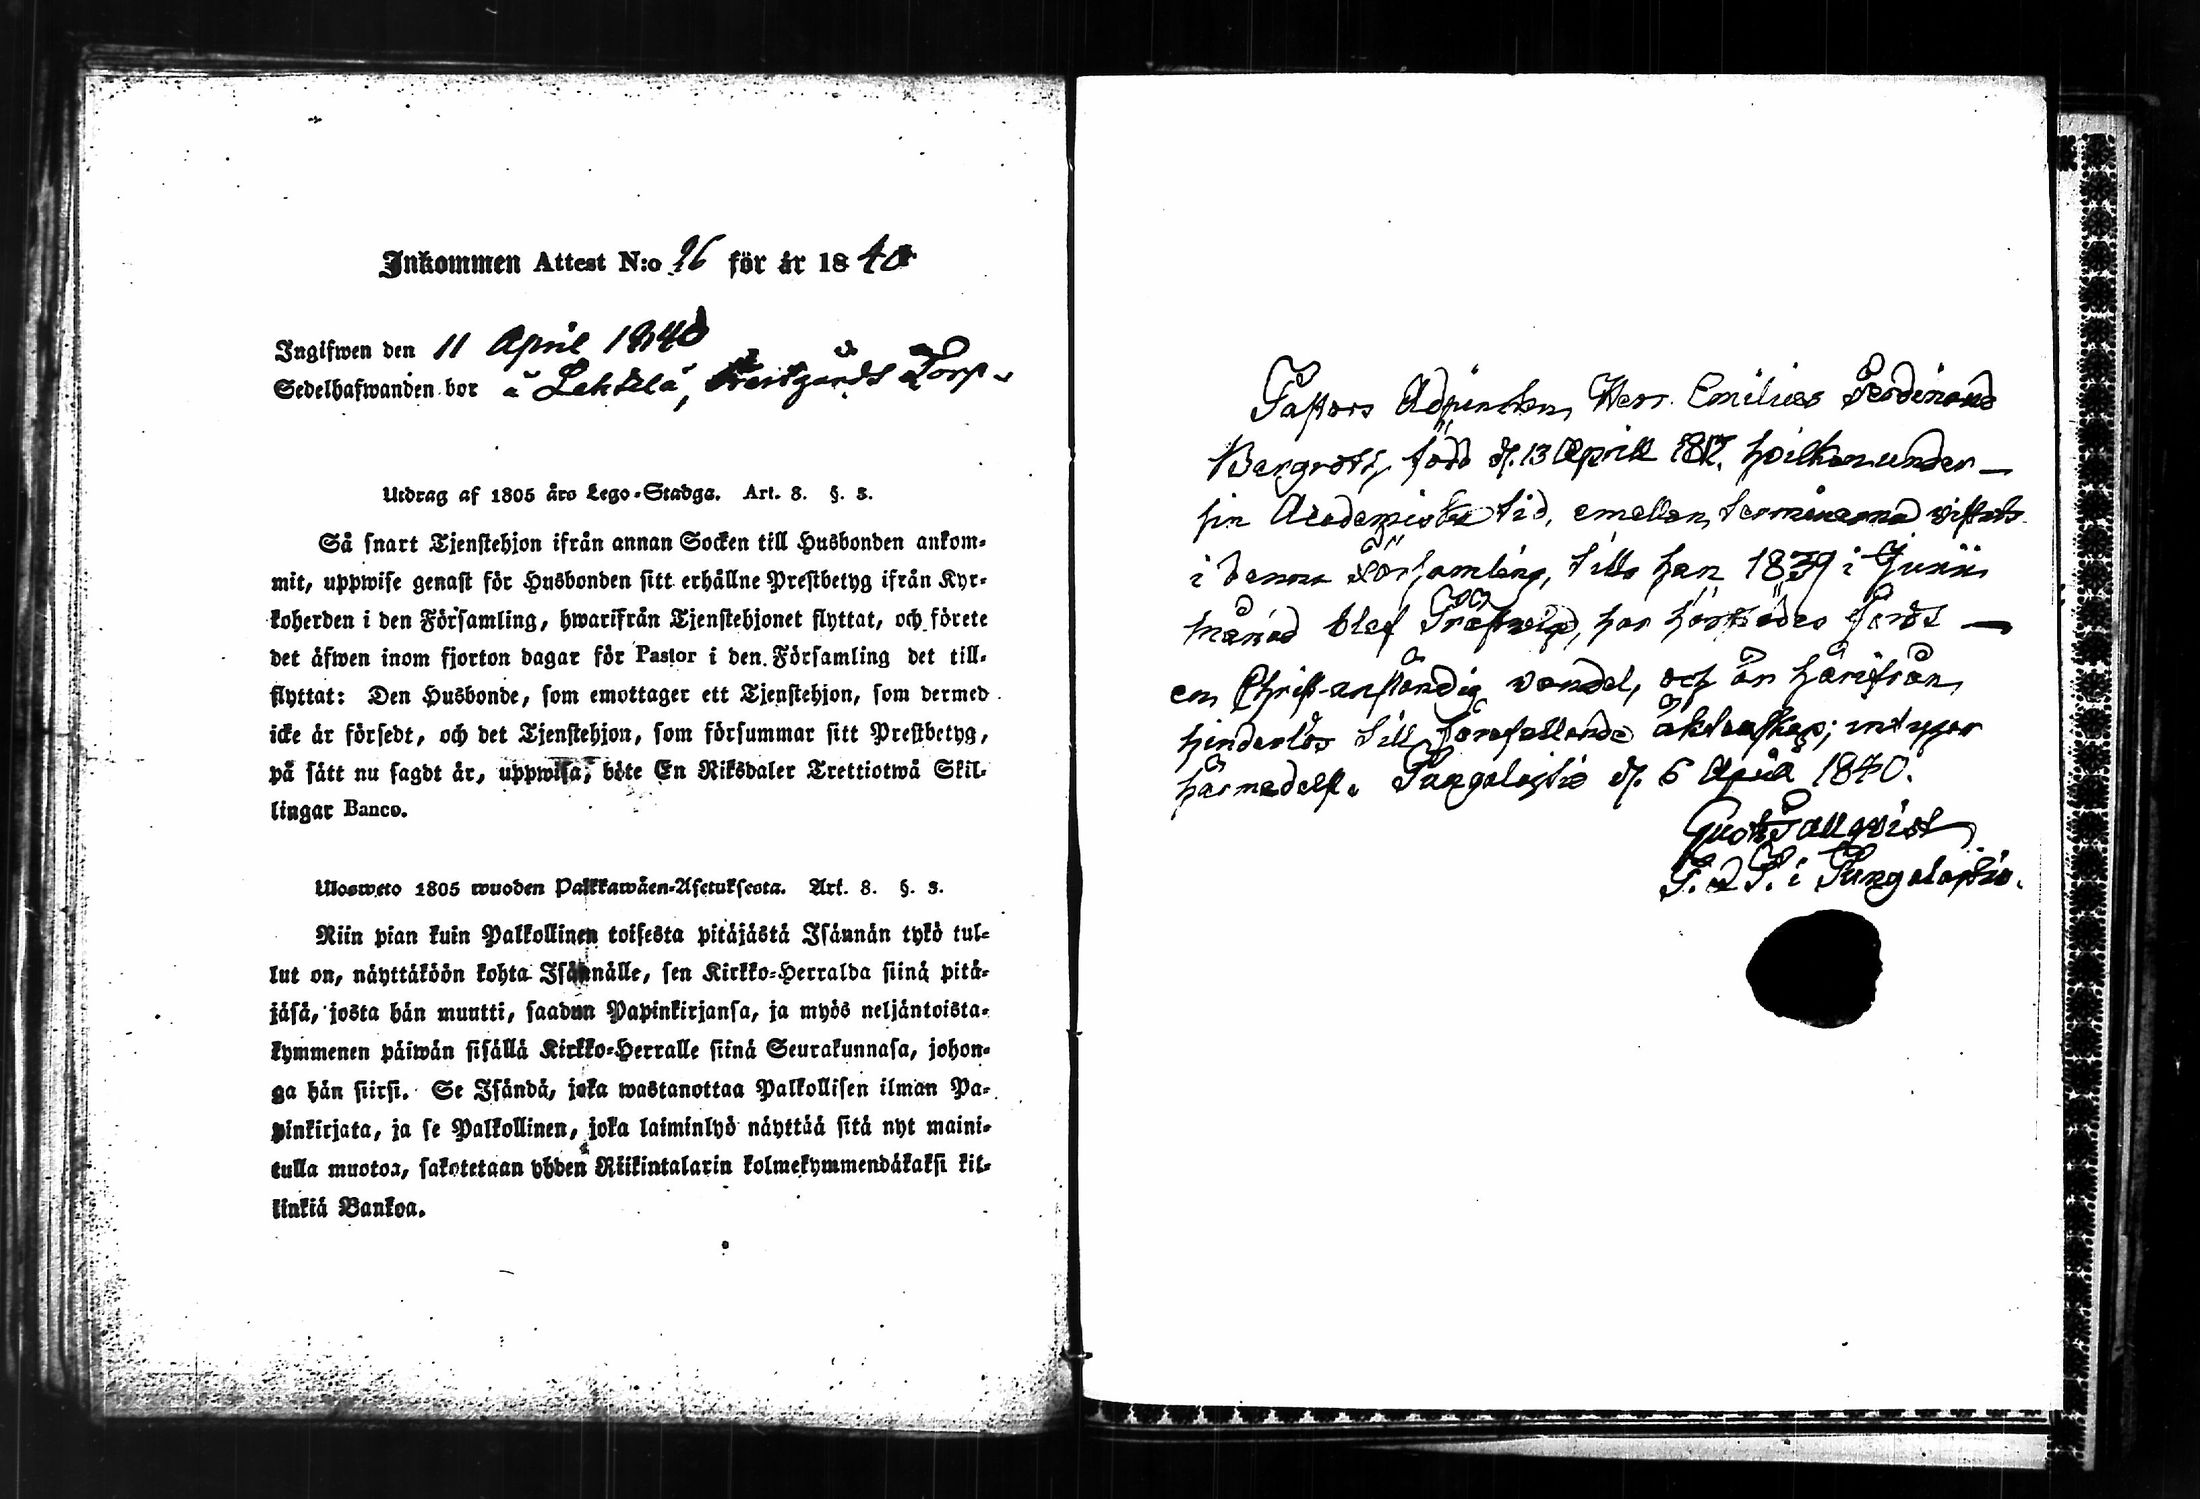 Inkommen Attest N:o 26 för år 1840
Ingifwen den 11 April 1840
Sedelhafwanden bor å Lehtilä, Torp
Utdrag af 1805 års Lego-Stadga. Art. 8. §. 3.
Så snart Tjenstehjon ifrån annan Socken till Husbonden ankom-
mit, uppwise genast för Husbonden sitt erhållne Prestbetyg ifrån Kyr-
koherden i den Församling, hwarifrån Tjenstehjonet flyttat, och förete
det äfwen inom fjorton dagar för Pastor i den Församling det till-
flyttat: Den Husbonde, som emottager ett Tjenstehjon, som dermed
icke är försedt, och det Tjenstehjon, som försummar sitt Prestbetyg,
på sätt nu sagdt är, uppwisa, böte En Riksdaler Trettiotwå Skil-
lingar Banco.
Ulosweto 1805 wuoden Palkkawäen-Asetuksesta. Art. 8. §. 3.
Niin pian kuin Palkollinen toisesta pitäjästä Isännän tykö tul-
lut on, näyttäköön kohta Isännälle, sen Kirkko-Herralda siinä pitä-
jäsä, josta hän muutti, saadun Papinkirjansa, ja myös neljäntoista-
kymmenen päiwän sisällä Kirkko-Herralle siinä Seurakunnasa, johon-
ga hän siirsi. Se Isändä, joka wastanottaa Palkollisen ilman Pa-
pinkirjata, ja se Palkollinen, joka laiminlyö näyttää sitä nyt maini-
tulla muotoa, sakotetaan yhden Riikintalarin kolmekymmendäkaksi kil-
linkiä Bankoa.
Pastors Adjuncten, Herr Emilius Ferdinand
Bergroth, född d. 13 April 1817, hvilken under
sin Academiska tid, emellan terminerna vistats
i denna Församling, tills han 1839 i Junii
månad blef Prästvigd, har härstädes fördt
en Christ-anständig vandel, och är härifrån
hinderlös till förefallande äktenskap; intygar
härmedelst. Pungalaitio d. 6 April 1840.
Gust. Tallqvist
P. L. P. i Pungalaitio.